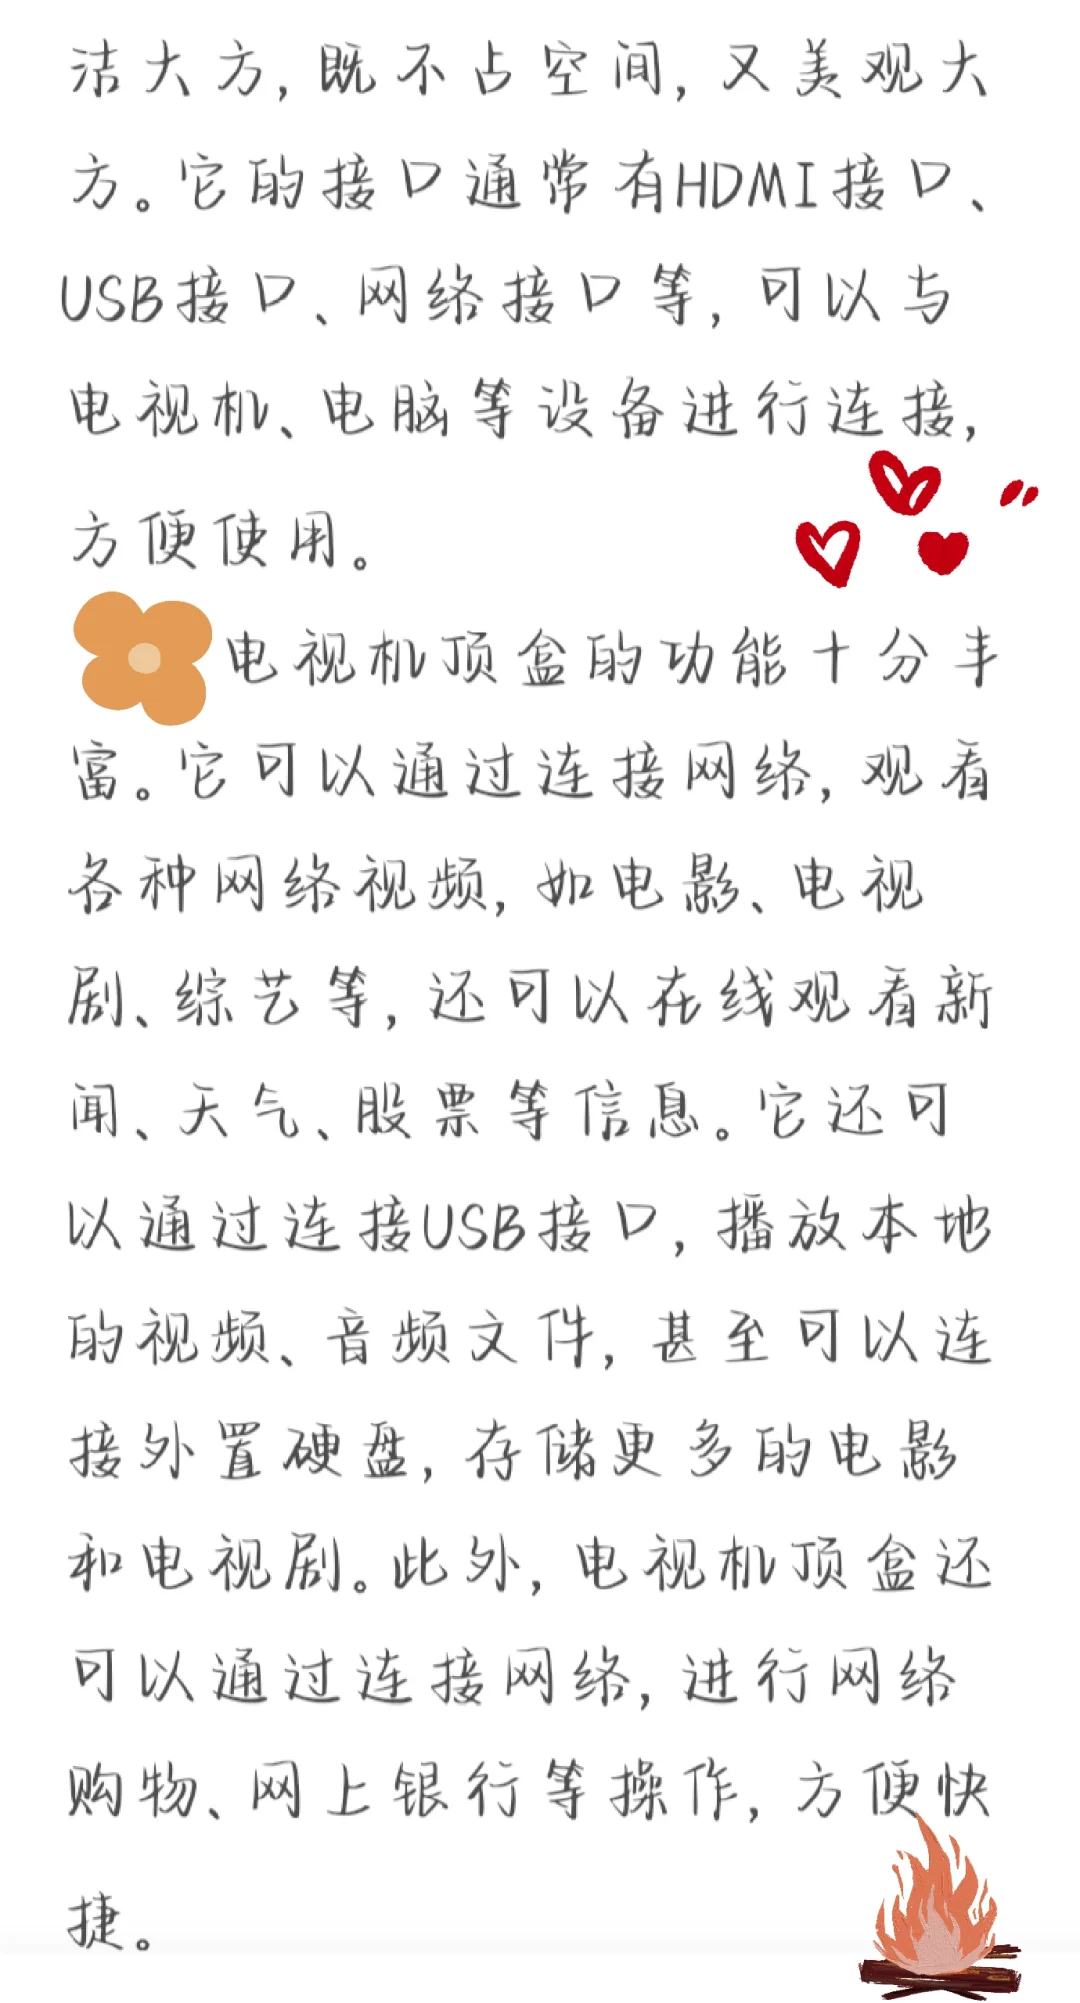 洁大方,既不占空间,又美观大
方。它的接口通常有HDMI接口、
USB接口、网络接口等,可以与
电视机、电脑等设备进行连接,
方便使用。
电视机顶盒的功能十分丰
富。它可以通过连接网络,观看
各种网络视频,如电影、电视
剧、综艺等,还可以在线观看新
闻、天气、股票等信息。它还可
以通过连接USB接口,播放本地
的视频、音频文件,甚至可以连
接外置硬盘,存储更多的电影
和电视剧。此外,电视机顶盒还
可以通过连接网络,进行网络
购物、网上银行等操作,方便快
捷。